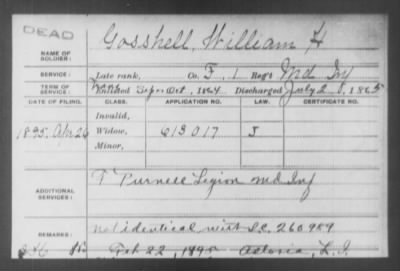 DEAD
NAME OF SOLDIER: Gosshell, William H
SERVICE: Late rank, Co. F, 1 Reg't Md Inf
TERM OF SERVICE: Enlisted Sep. Oct, 1864 Discharged July 2, 1865
DATE OF FILING. CLASS. APPLICATION NO. LAW. CERTIFICATE NO.
Invalid,
1895, Apr 26 Widow, 613017 J
Minor,
ADDITIONAL SERVICES: F Purnell Legion Md Inf
REMARKS: not identical with S.C. 260989
Feb 22, 1895 Astoria, L.I.